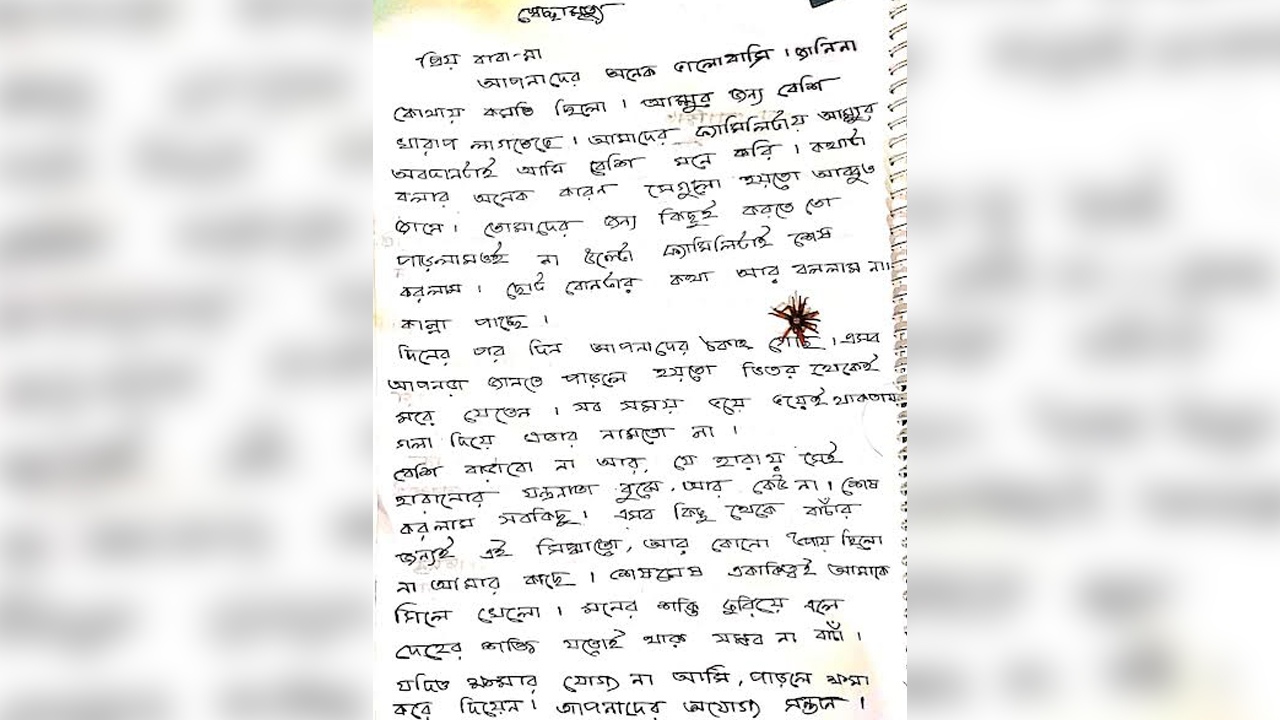 স্বেচ্ছামৃত্যু
প্রিয় বাবা-মা
আপনাদের অনেক ভালোবাসি। জানিনা
কোথায় কমতি ছিলো। আম্মুর জন্য বেশি
খারাপ লাগতেছে। আমাদের ফ্যামিলিটায় আম্মুর
অবদানটাই আমি বেশি মনে করি। কথাটা
বলার অনেক কারন সেগুলো হয়তো আব্বুও
জানে। তোমাদের জন্য কিছুই করতে তো
পাড়লামওই না উল্টো ফ্যামিলিটাই শেষ
করলাম। ছোট বোনটার কথা আর বললাম না।
কান্না পাচ্ছে।
দিনের পর দিন আপনাদের ঠকাই গেছি। এসব
আপনরা জানতে পাড়লে হয়তো ভিতর থেকেই
মরে যেতেন। সব সময় ভয়ে ভয়েই থাকতাম
গলা দিয়ে খাবার নামতো না।
বেশি বাড়াবো না আর, যে হারায় সেই
হারানোর যন্ত্রনাডা বুঝে, আর কেউ না। শেষ
করলাম সবকিছু। এসব কিছু থেকে বাচাঁর
জন্যই এই সিদ্ধান্তো, আর কোনো উপায় ছিলো
না আমার কাছে। শেষমেষ একাকিত্বই আমাকে
গিলে খেলো। মনের শক্তি ফুরিয়ে এলে
দেহের শক্তি যতোই থাক সম্ভব না বাচাঁ।
যদিও ক্ষমার যোগ্য না আমি, পাড়লে ক্ষমা
করে দিয়েন। আপনাদের অযোগ্য সন্তান।